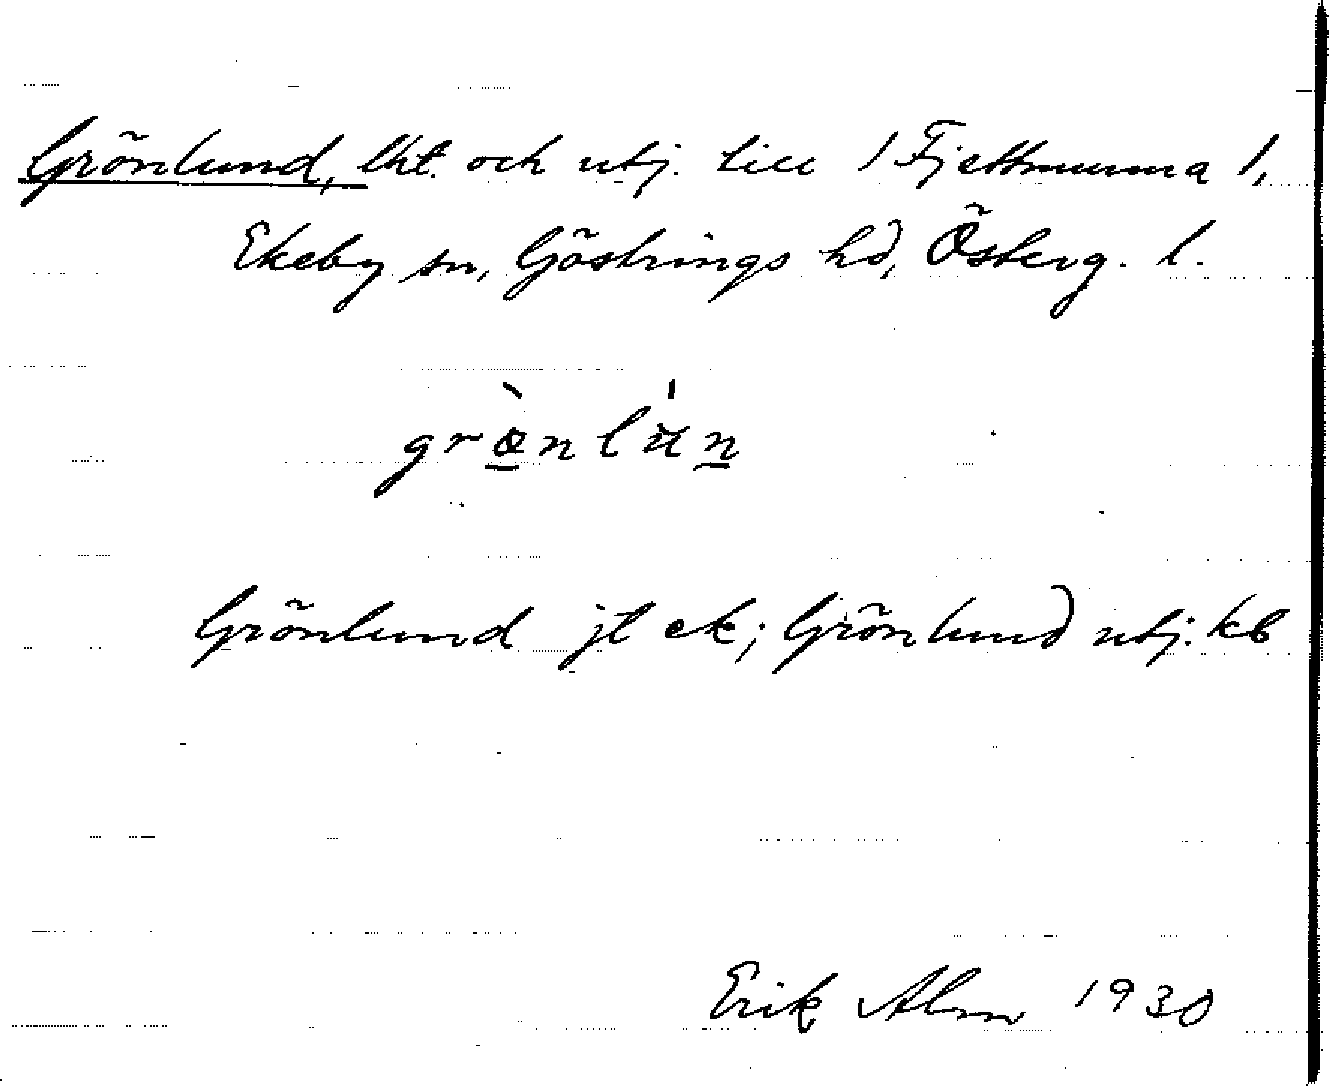 Grönlund, lht. och utj. till 1 Fjettmunna 1,
Ekeby sn, Göstrings hd, Österg. l.
grö̀nlún
Grönlund jl ek; Grönlund utj. kb
Erik Alm 1930